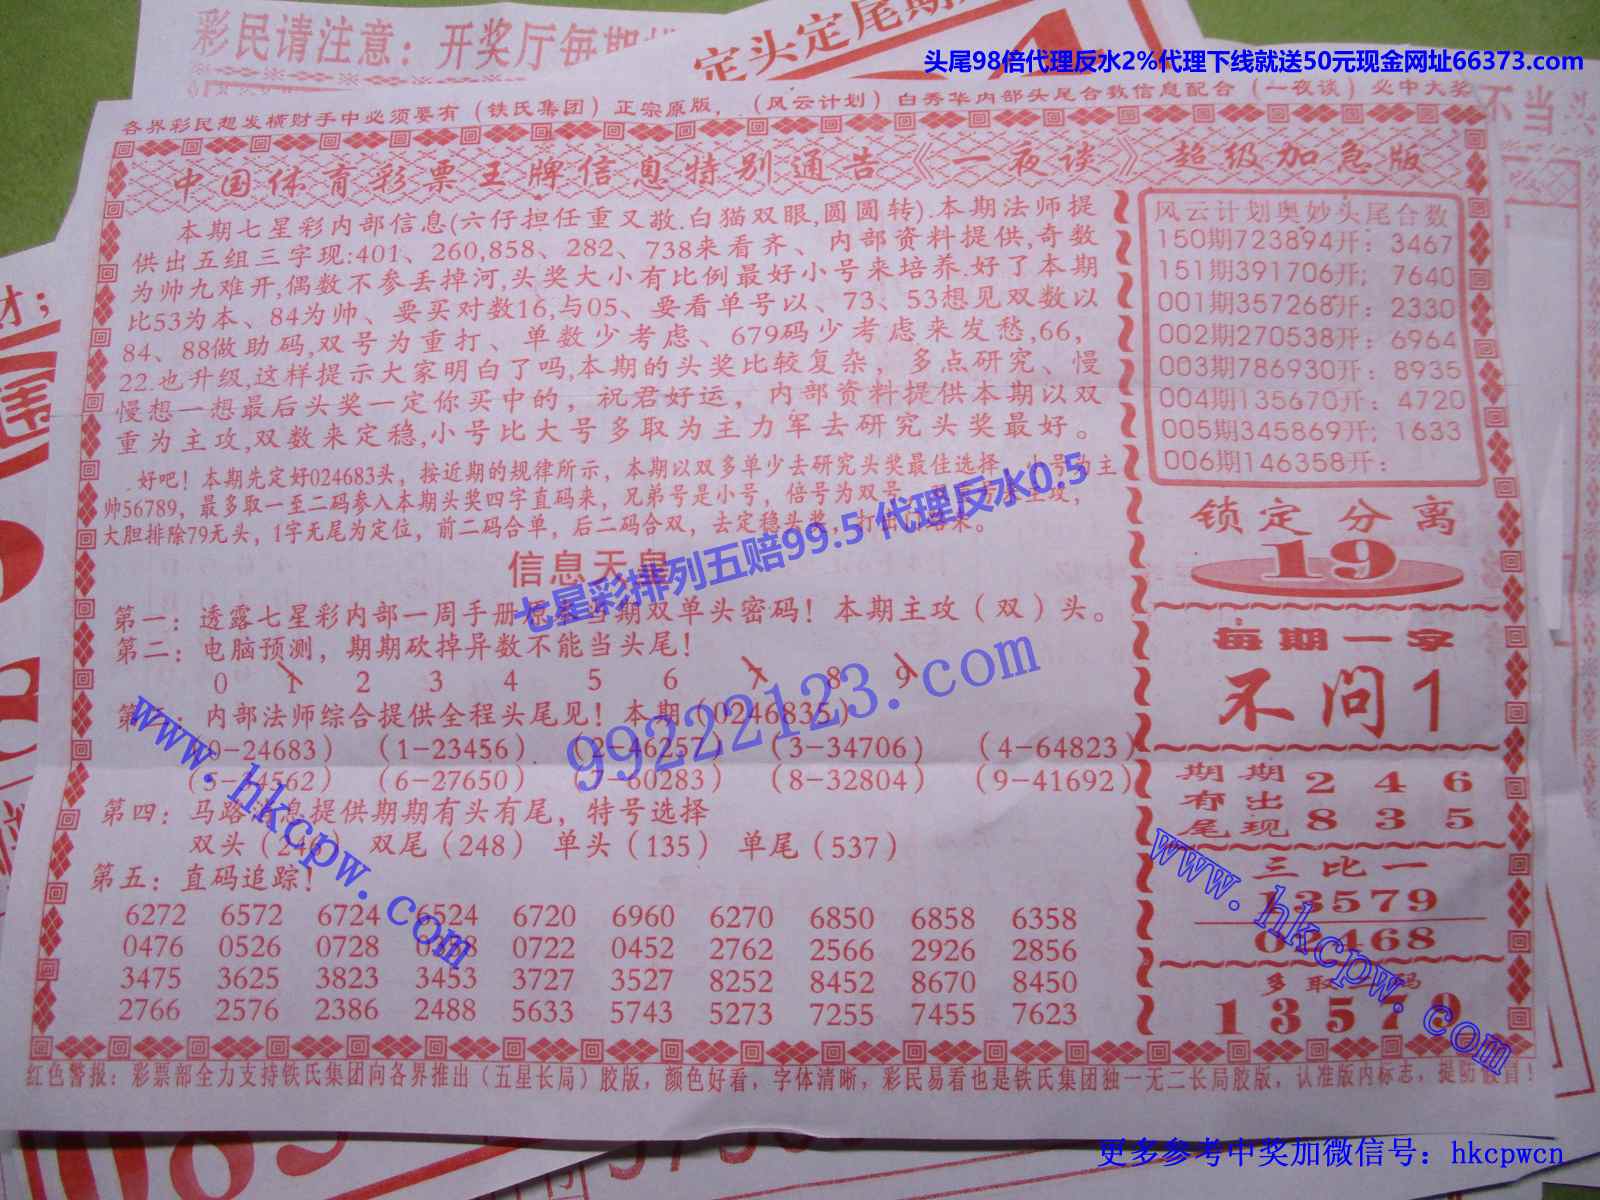 彩民请注意：开奖厅每期
定头定尾期
头尾98倍代理反水2%代理下线就送50元现金网址66373.com
不当
各界彩民想发横财手中必须要有（铁氏集团）正宗原版，（风云计划）白秀华内部头尾合数信息配合（一夜谈）必中大奖
中国体育彩票王牌信息特别通告《一夜谈》超级加急版
本期七星彩内部信息(六仔担任重又敬.白猫双眼,圆圆转).本期法师提
供出五组三字现:401、260,858、282、738来看齐、内部资料提供,奇数
为帅九难开,偶数不参丢掉河,头奖大小有比例最好小号来培养.好了本期
比53为本、84为帅、要买对数16,与05、要看单号以、73、53想见双数以
84、88做助码,双号为重打、单数少考虑、679码少考虑来发愁,66,
22.也升级,这样提示大家明白了吗,本期的头奖比较复杂，多点研究、慢
慢想一想最后头奖一定你买中的，祝君好运，内部资料提供本期以双
重为主攻,双数来定稳,小号比大号多取为主力军去研究头奖最好。
好吧！本期先定好024683头，按近期的规律所示，本期以双多单少去研究头奖最佳选择，小号为主
帅56789，最多取一至二码参入本期头奖四字直码来，兄弟号是小号，倍号为双号，主攻，
大胆排除79无头，1字无尾为定位，前二码合单，后二码合双，去定稳头奖，打来。
信息天皇
七星彩排列五赔99.5 代理反水0.5
第一：透露七星彩内部一周手册期双单头密码！本期主攻（双）头。
第二：电脑预测，期期砍掉异数不能当头尾！
0 1 2 3 4 5 6 7 8 9
第三：内部法师综合提供全程头尾见！本期（0246835）
（0-24683）（1-23456）（2-46257）（3-34706）（4-64823）
（5-4562）（6-27650）（7-60283）（8-32804）（9-41692）
99222123.com
第四：马路消息提供期期有头有尾，特号选择
双头（246）双尾（248）单头（135）单尾（537）
第五：直码追踪！
6272 6572 6724 6524 6720 6960 6270 6850 6858 6358
0476 0526 0728 0722 0452 2762 2566 2926 2856
3475 3625 3823 3453 3727 3527 8252 8452 8670 8450
2766 2576 2386 2488 5633 5743 5273 7255 7455 7623
www.hkcpw.com
风云计划奥妙头尾合数
150期723894开：3467
151期391706开；7640
001期357268开：2330
002期270538开：6964
003期786930开：8935
004期135670开：4720
005期345869开；1633
006期146358开：
锁定分离
19
每期一字
不问1
期期有出尾现
2 4 6
8 3 5
三比一
13579
02468
多取码
13579
www.hkcpw.com
红色警报：彩票部全力支持铁氏集团向各界推出（五星长局）胶版，颜色好看，字体清晰，彩民易看也是铁氏集团独一无二长局胶版，认准版内标志，提防假冒！
更多参考中奖加微信号：hkcpwcn